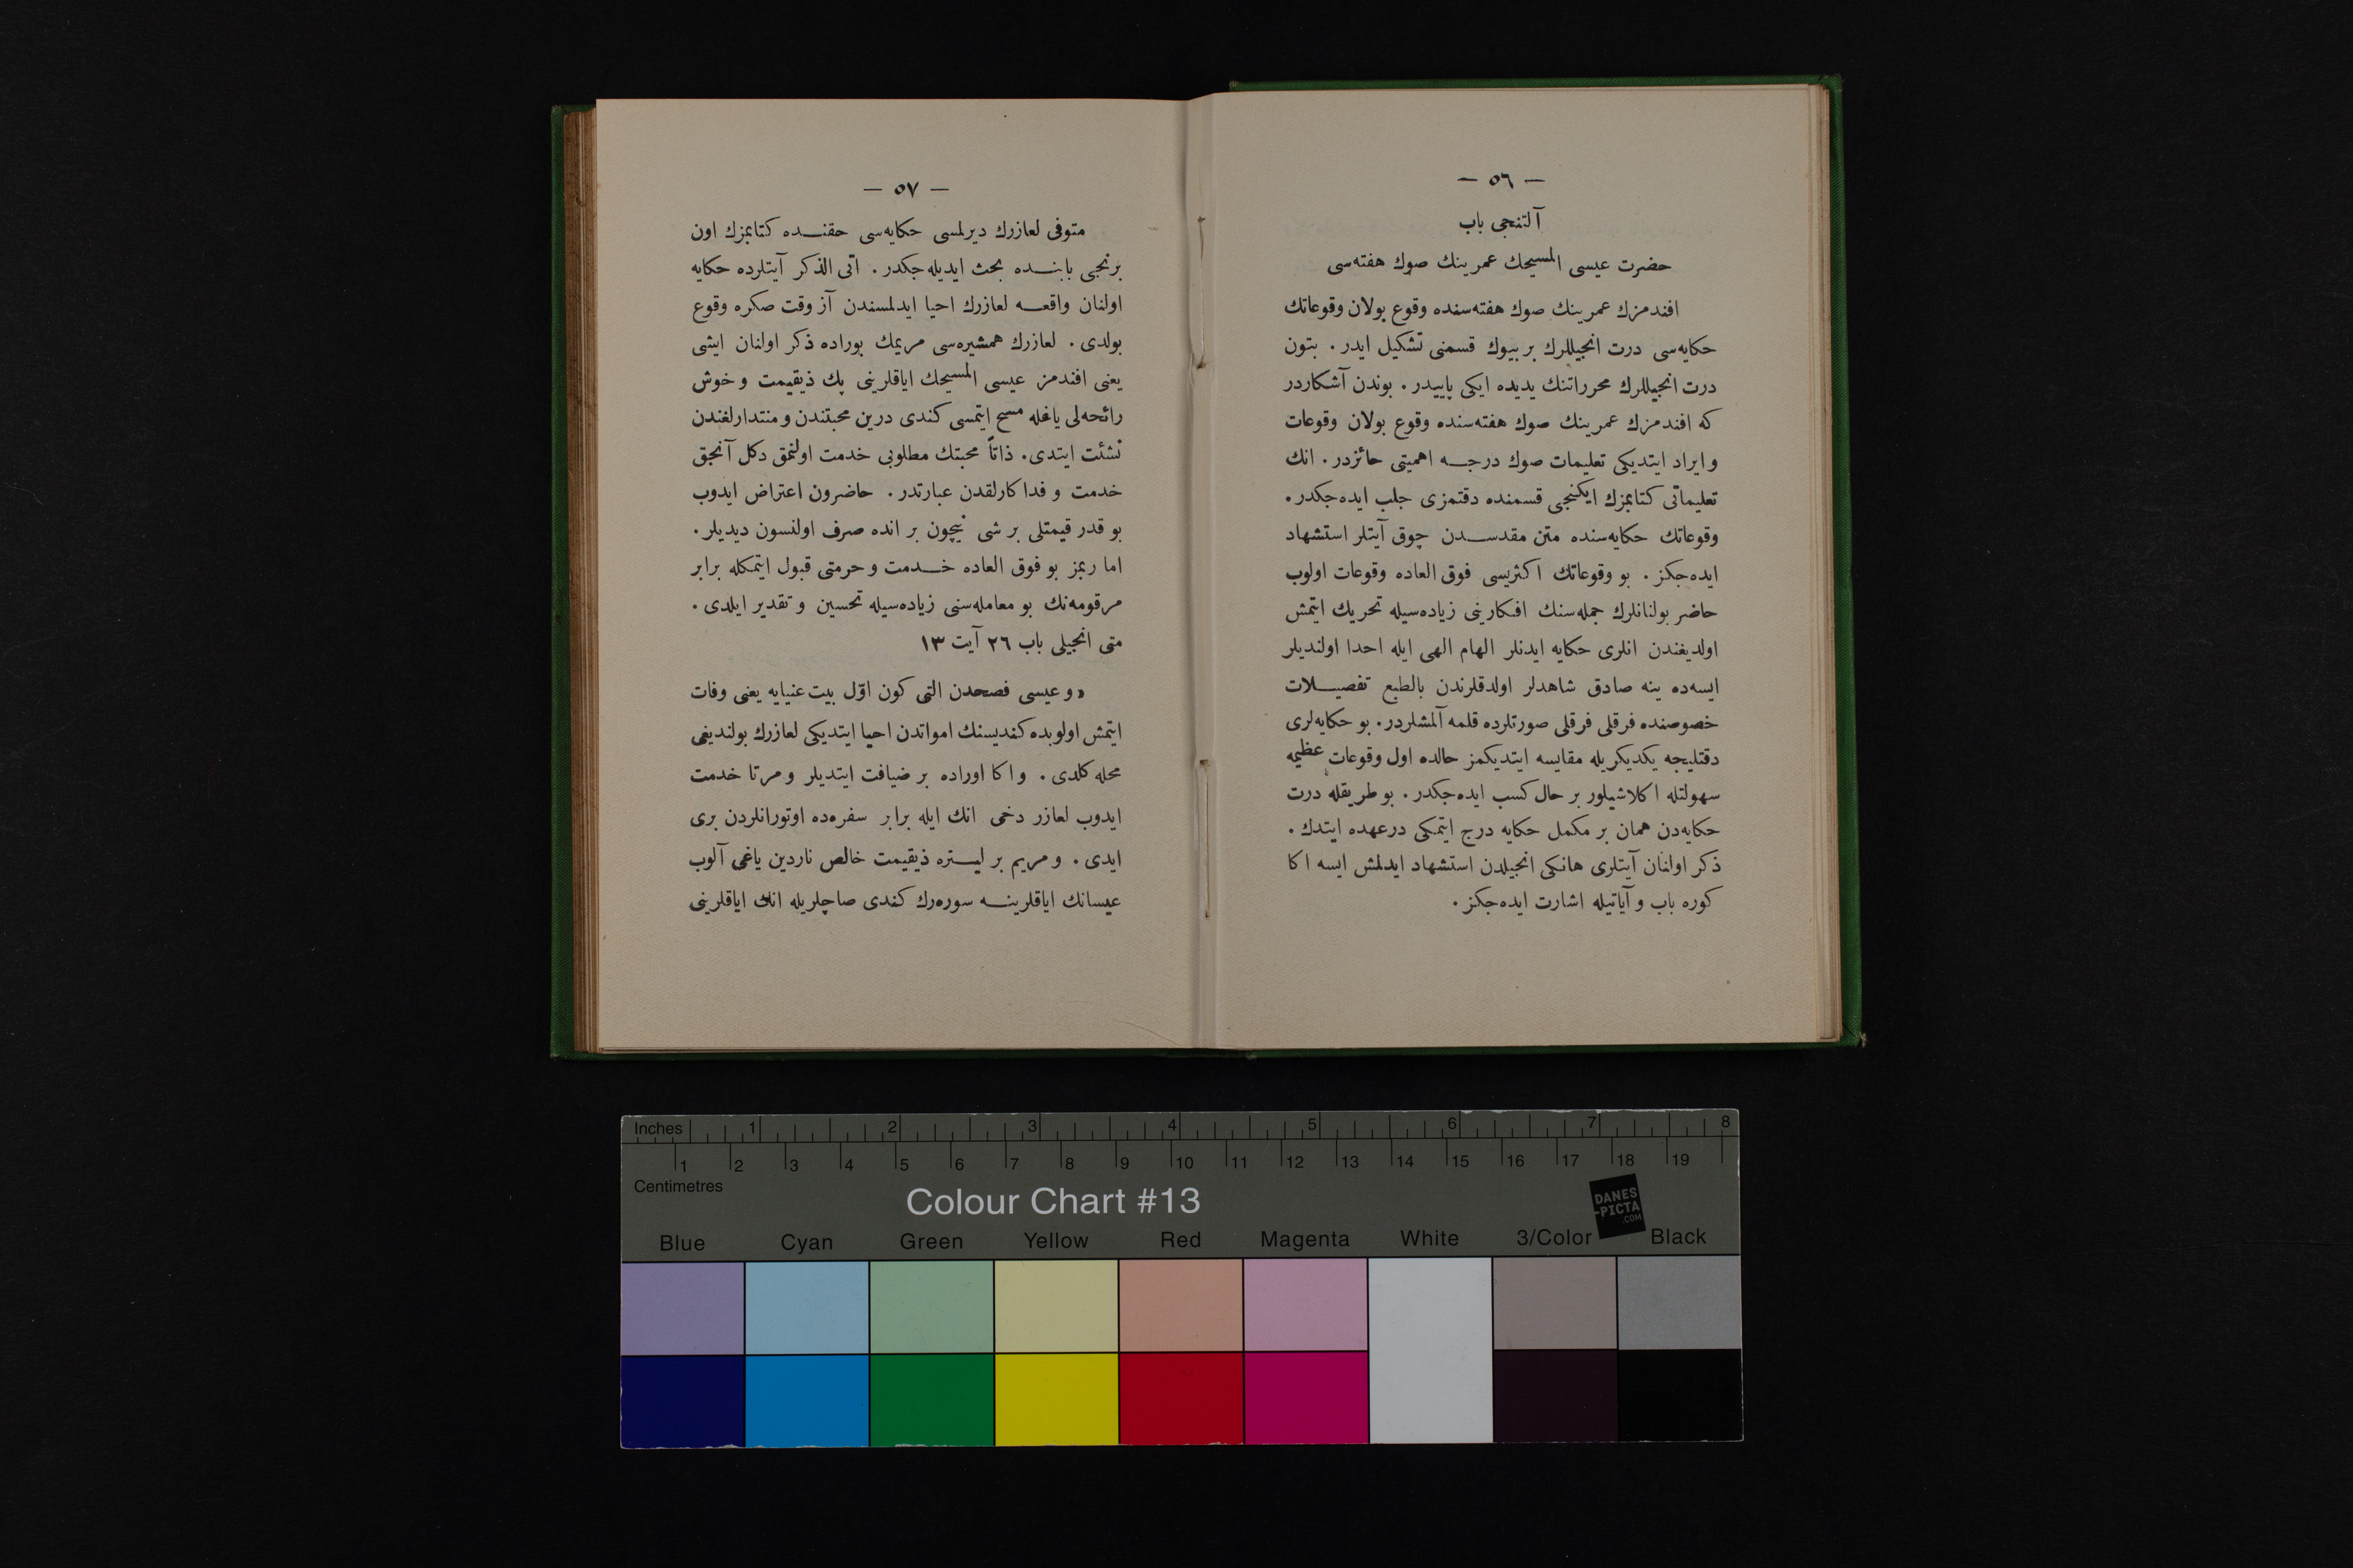 — ٥٦ —
آلتنجی باب
حضرت عیسی المسیحك عمرینك صوك هفته‌سی
افندمزك عمرینك صوك هفته‌سنده وقوع بولان وقوعاتك
حکایه‌سی درت انجیللرك بر بیوك قسمنی تشکیل ایدر . بتون
درت انجیللرك محرراتنك یدیده ایکی پاییدر . بوندن آشکاردر
که افندمزك عمرینك صوك هفته‌سنده وقوع بولان وقوعات
و ایراد ایتدیکی تعلیمات صوك درجه اهمیتی حائزدر . انك
تعلیماتی کتابمزك ایکنجی قسمنده دقتمزی جلب ایده‌جکدر .
وقوعاتك حکایه‌سنده متن مقدسدن چوق آیتلر استشهاد
ایده‌جکز . بو وقوعاتك اکثریسی فوق العاده وقوعات اولوب
حاضر بولنانلرك جمله‌سنك افکارینی زیاده‌سیله تحریك ایتمش
اولدیغندن انلری حکایه ایدنلر الهام الهی ایله احدا اولندیلر
ایسه‌ده ینه صادق شاهدلر اولدقلرندن بالطبع تفصیلات
خصوصنده فرقلی فرقلی صورتلرده قلمه آلمشلردر . بو حکایه‌لری
دقتلیجه یکدیکریله مقایسه ایتدیکمز حالده اول وقوعات عظیمه
سهولتله اکلاشیلور بر حال کسب ایده‌جکدر . بو طریقله درت
حکایه‌دن همان بر مکمل حکایه درج ایتمکی درعهده ایتدك .
ذکر اولنان آیتلری هانکی انجیلدن استشهاد ایدلمش ایسه اکا
کوره باب و آیاتیله اشارت ایده‌جکز .
— ٥٧ —
متوفی لعازرك دیرلمسی حکایه‌سی حقنده کتابمزك اون
برنجی بابنده بحث ایدیله‌جکدر . اتی الذکر آیتلرده حکایه
اولنان واقعه لعازرك احیا ایدلمسندن آز وقت صکره وقوع
بولدی . لعازرك همشیره‌سی مریمك بوراده ذکر اولنان ایشی
یعنی افندمز عیسی المسیحك ایاقلرینی پك ذیقیمت و خوش
رائحه‌لی یاغله مسح ایتمسی کندی درین محبتندن و منتدارلغندن
نشئت ایتدی . ذاتاً محبتك مطلوبی خدمت اولنمق دکل آنجق
خدمت و فداکارلقدن عبارتدر . حاضرون اعتراض ایدوب
بو قدر قیمتلی بر شی نیچون بر انده صرف اولنسون دیدیلر .
اما ربمز بو فوق العاده خدمت و حرمتی قبول ایتمکله برابر
مرقومه‌نك بو معامله‌سنی زیاده‌سیله تحسین و تقدیر ایلدی .
متی انجیلی باب ٢٦ آیت ١٣
« و عیسی فصحدن التی کون اوّل بیت عنیایه یعنی وفات
ایتمش اولوبده کندیسنك امواتدن احیا ایتدیکی لعازرك بولندیغی
محله کلدی . و اکا اوراده بر ضیافت ایتدیلر و مرتا خدمت
ایدوب لعازر دخی انك ایله برابر سفره‌ده اوتورانلردن بری
ایدی . و مریم بر لیتره ذیقیمت خالص ناردین یاغی آلوب
عیسانك ایاقلرینه سوره‌رك کندی صاچلریله انك ایاقلرینی
Inches 1 2 3 4 5 6 7 8
1 2 3 4 5 6 7 8 9 10 11 12 13 14 15 16 17 18 19
Centimetres
Colour Chart #13
DANES
-PICTA
.COM
Blue Cyan Green Yellow Red Magenta White 3/Color Black